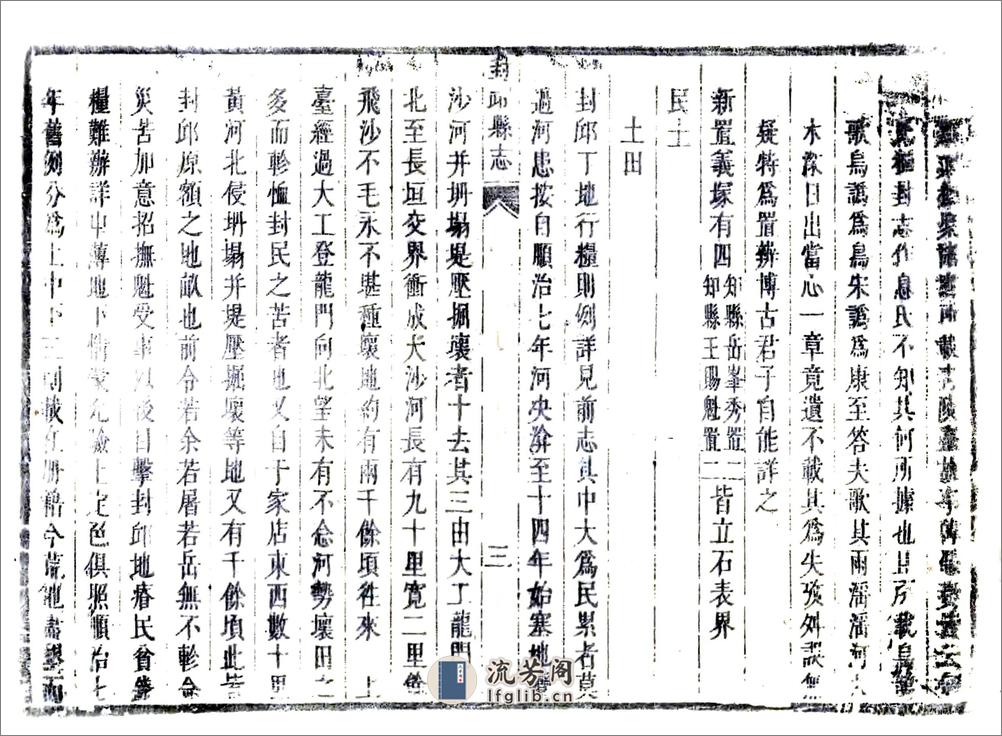 封志作息氏不知其何所據也且所載烏鵲
歌烏譌為鳥宋譌為康至答夫歌其雨滛滛河大
水深日出當心一章竟遺不載其為失攷舛誤無
疑特為置辨博古君子自能詳之
新置義塚有四知縣岳峯秀置二知縣王賜魁置二皆立石表界
民土
土田
封邱丁地行糧則例詳見前志其中大為民累者莫
過河患按自順治七年河决
至十四年始塞地
沙河并坍塌堤壓掘壞者十去其三由大工龍門
北至長垣交界衝成大沙河長有九十里寬二里餘
飛沙不毛永不堪種壞地約有兩千餘頃往來 上
臺經過大工登龍門向北望未有不念河勢壞田之
多而軫恤封民之苦者也又自于家店東西數十里
黃河北侵坍塌并堤壓掘壞等地又有千餘頃此皆
封邱原額之地畝也前令若余若屠若岳無不軫念
災苦加意招撫魁受事以後目擊封邱地瘠民貧錢
糧難辦詳中薄地下情蒙允驗土定色俱照順治七
年舊例分為上中下三則載在册籍今荒地盡墾而
封邱縣志
三
流芳阁
lfglib.cn